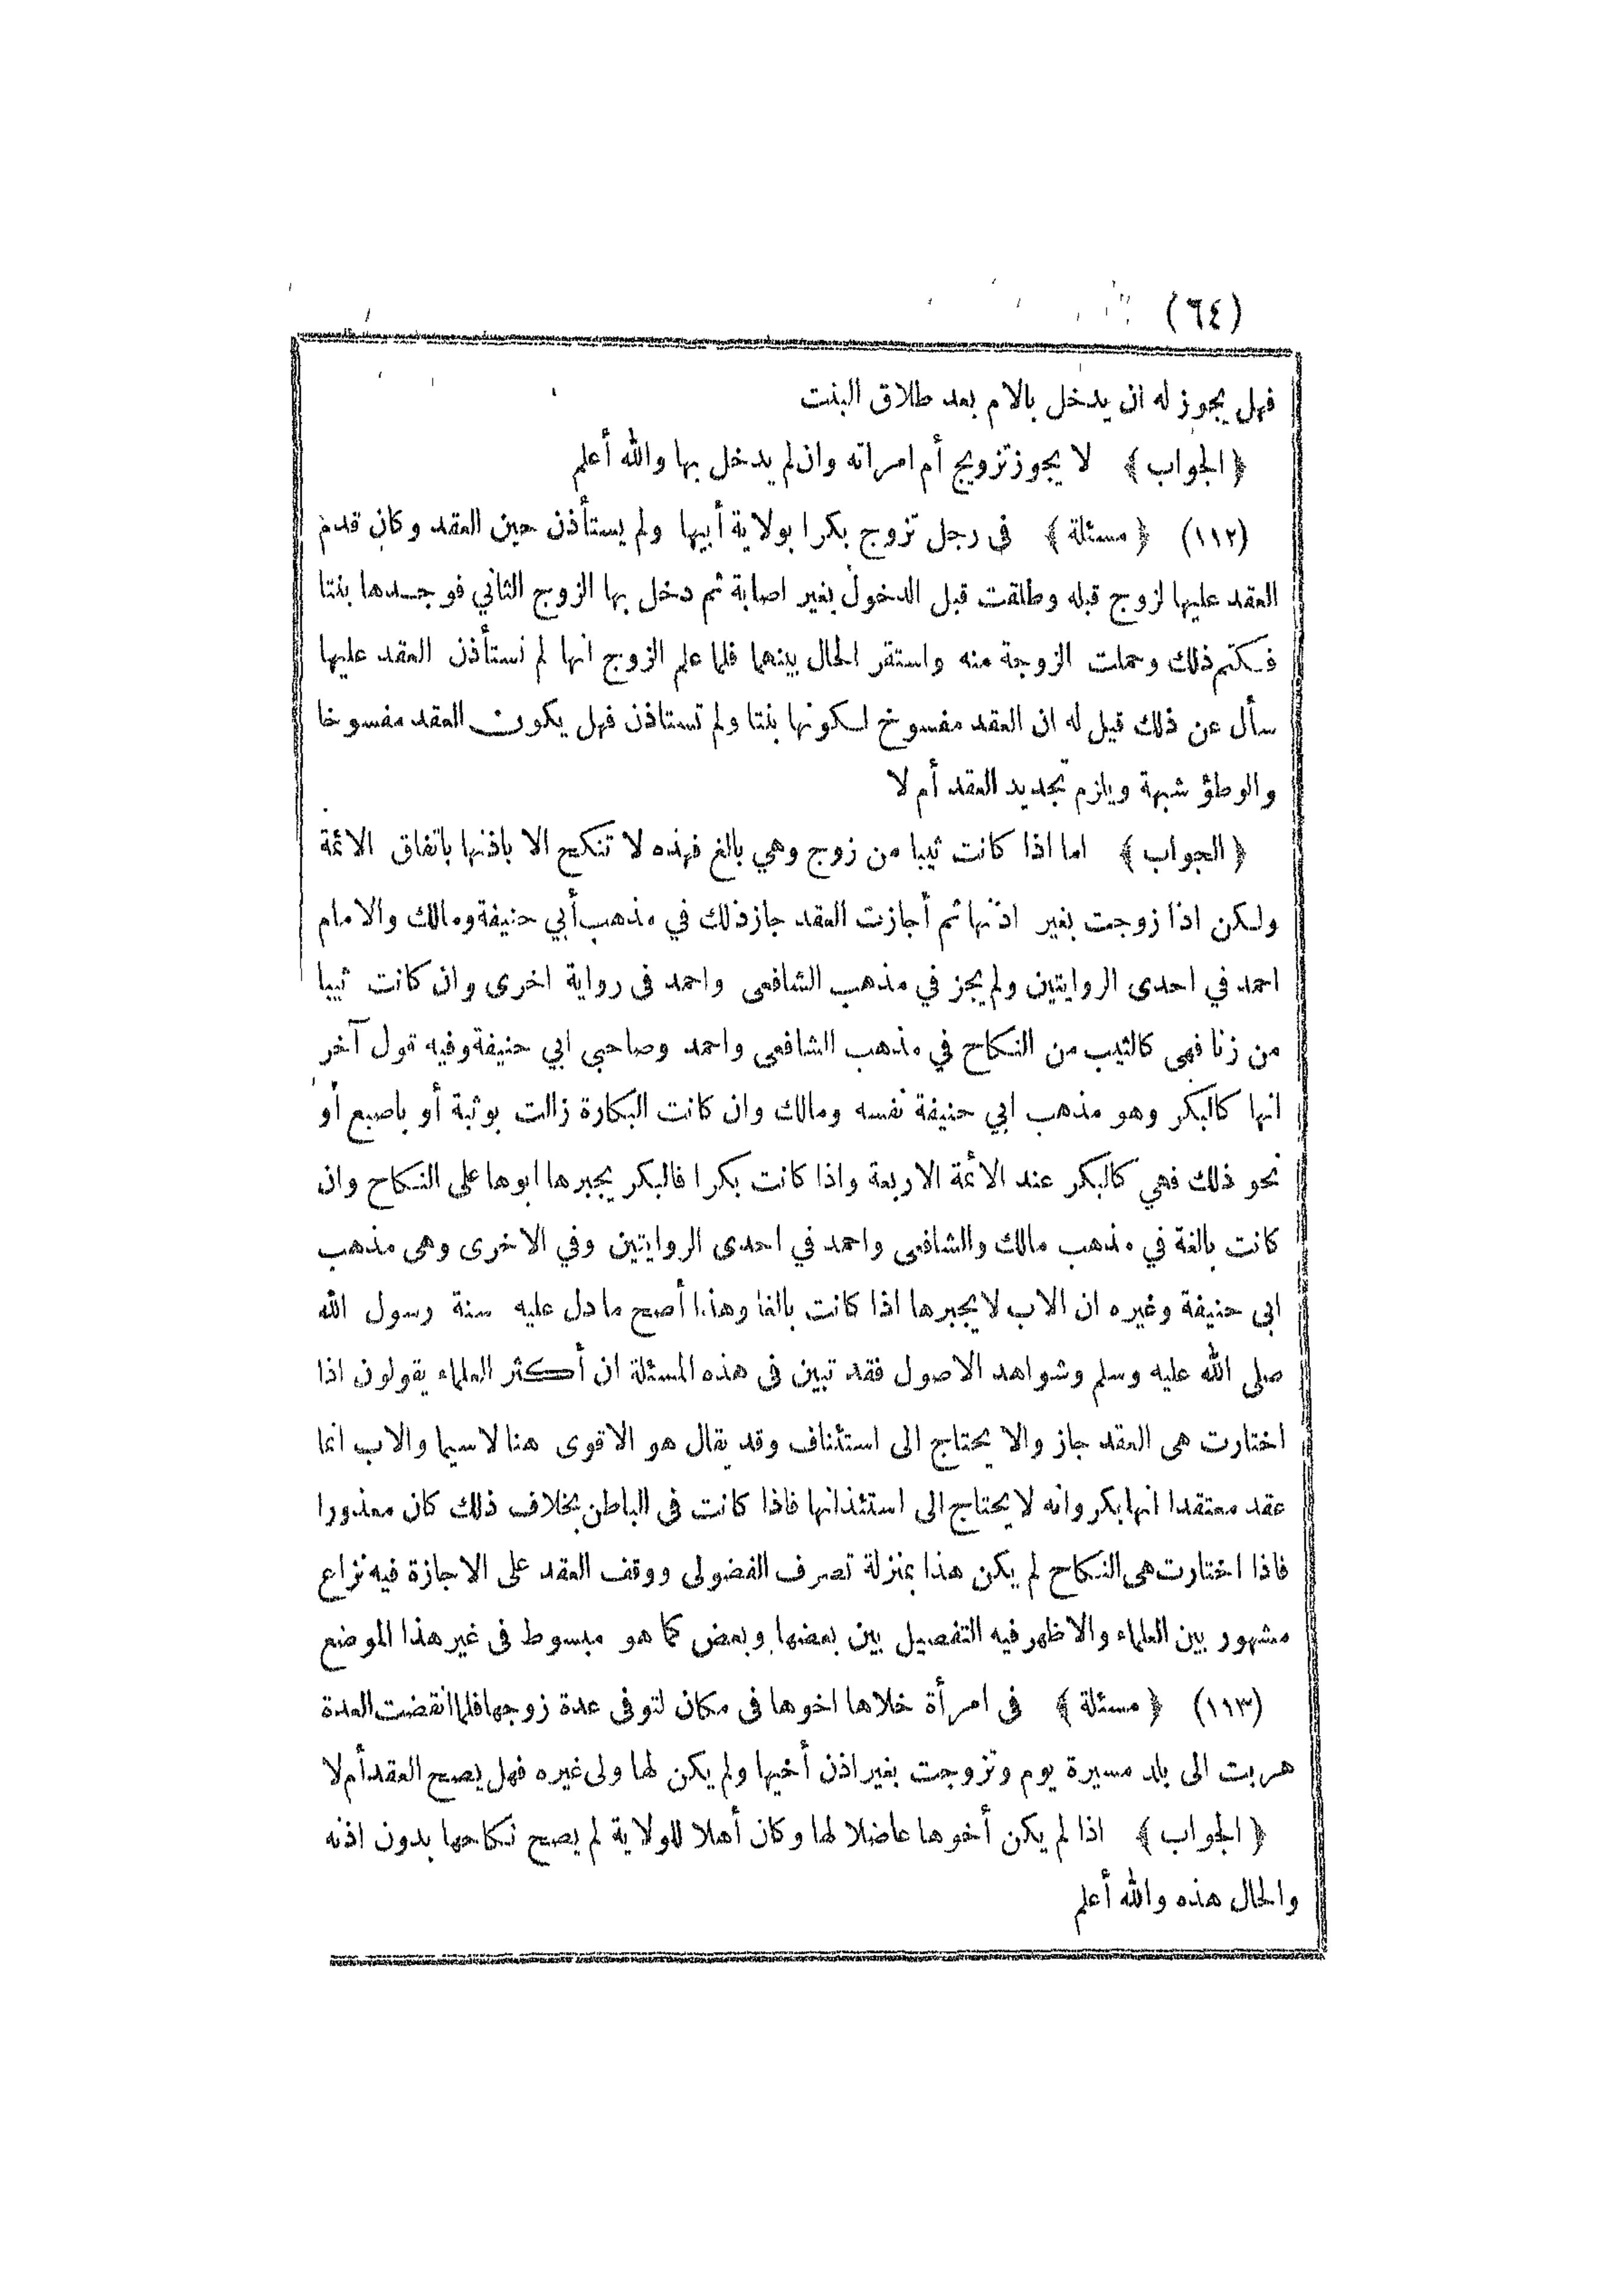 (٦٤)
فهل يجوز له ان يدخل بالام بعد طلاق البنت
﴿ الجواب ﴾ لا يجوز تزويج أم امراته وان لم يدخل بها والله أعلم
(١١٢) ﴿ مسئلة ﴾ فى رجل تزوج بكرا بولاية أبيها ولم يستأذن حين العقد وكان قدم
العقد عليها لزوج قبله وطلقت قبل الدخول بغير اصابة ثم دخل بها الزوج الثاني فوجدها بنتا
فكتم ذلك وحملت الزوجة منه واستقر الحال بينهما فلما علم الزوج انها لم تستأذن العقد عليها
سأل عن ذلك قيل له ان العقد مفسوخ لكونها بنتا ولم تستاذن فهل يكون العقد مفسوخا
والوطؤ شبهة ويلزم تجديد العقد أم لا
﴿ الجواب ﴾ اما اذا كانت ثيبا من زوج وهي بالغ فهذه لا تنكح الا باذنها باتفاق الائمة
ولكن اذا زوجت بغير اذنها ثم أجازت العقد جاز ذلك في مذهب أبي حنيفة ومالك والامام
احمد في احدى الروايتين ولم يجز في مذهب الشافعى واحمد فى رواية اخرى وان كانت ثيبا
من زنا فهى كالثيب من النكاح في مذهب الشافعى واحمد وصاحبى ابي حنيفة وفيه قول آخر
انها كالبكر وهو مذهب ابي حنيفة نفسه ومالك وان كانت البكارة زالت بوثبة أو باصبع أو
نحو ذلك فهي كالبكر عند الائمة الاربعة واذا كانت بكرا فالبكر يجبرها ابوها على النكاح وان
كانت بالغة في مذهب مالك والشافعى واحمد في احدى الروايتين وفي الاخرى وهى مذهب
ابى حنيفة وغيره ان الاب لا يجبرها اذا كانت بالغا وهذا أصح ما دل عليه سنة رسول الله
صلى الله عليه وسلم وشواهد الاصول فقد تبين فى هذه المسئلة ان أكثر العلماء يقولون اذا
اختارت هى العقد جاز والا يحتاج الى استئناف وقد يقال هو الاقوى هنا لاسيما والاب انما
عقد معتقدا انها بكر وانه لا يحتاج الى استئذانها فاذا كانت فى الباطن بخلاف ذلك كان معذورا
فاذا اختارت هى النكاح لم يكن هذا بمنزلة تصرف الفضولى ووقف العقد على الاجازة فيه نزاع
مشهور بين العلماء والاظهر فيه التفصيل بين بعضها وبعض كما هو مبسوط فى غير هذا الموضع
(١١٣) ﴿ مسئلة ﴾ فى امرأة خلاها اخوها فى مكان لتوفى عدة زوجها فلما انقضت العدة
هربت الى بلد مسيرة يوم وتزوجت بغير اذن أخيها ولم يكن لها ولى غيره فهل يصح العقد أم لا
﴿ الجواب ﴾ اذا لم يكن أخوها عاضلا لها وكان أهلا للولاية لم يصح نكاحها بدون اذنه
والحال هذه والله أعلم